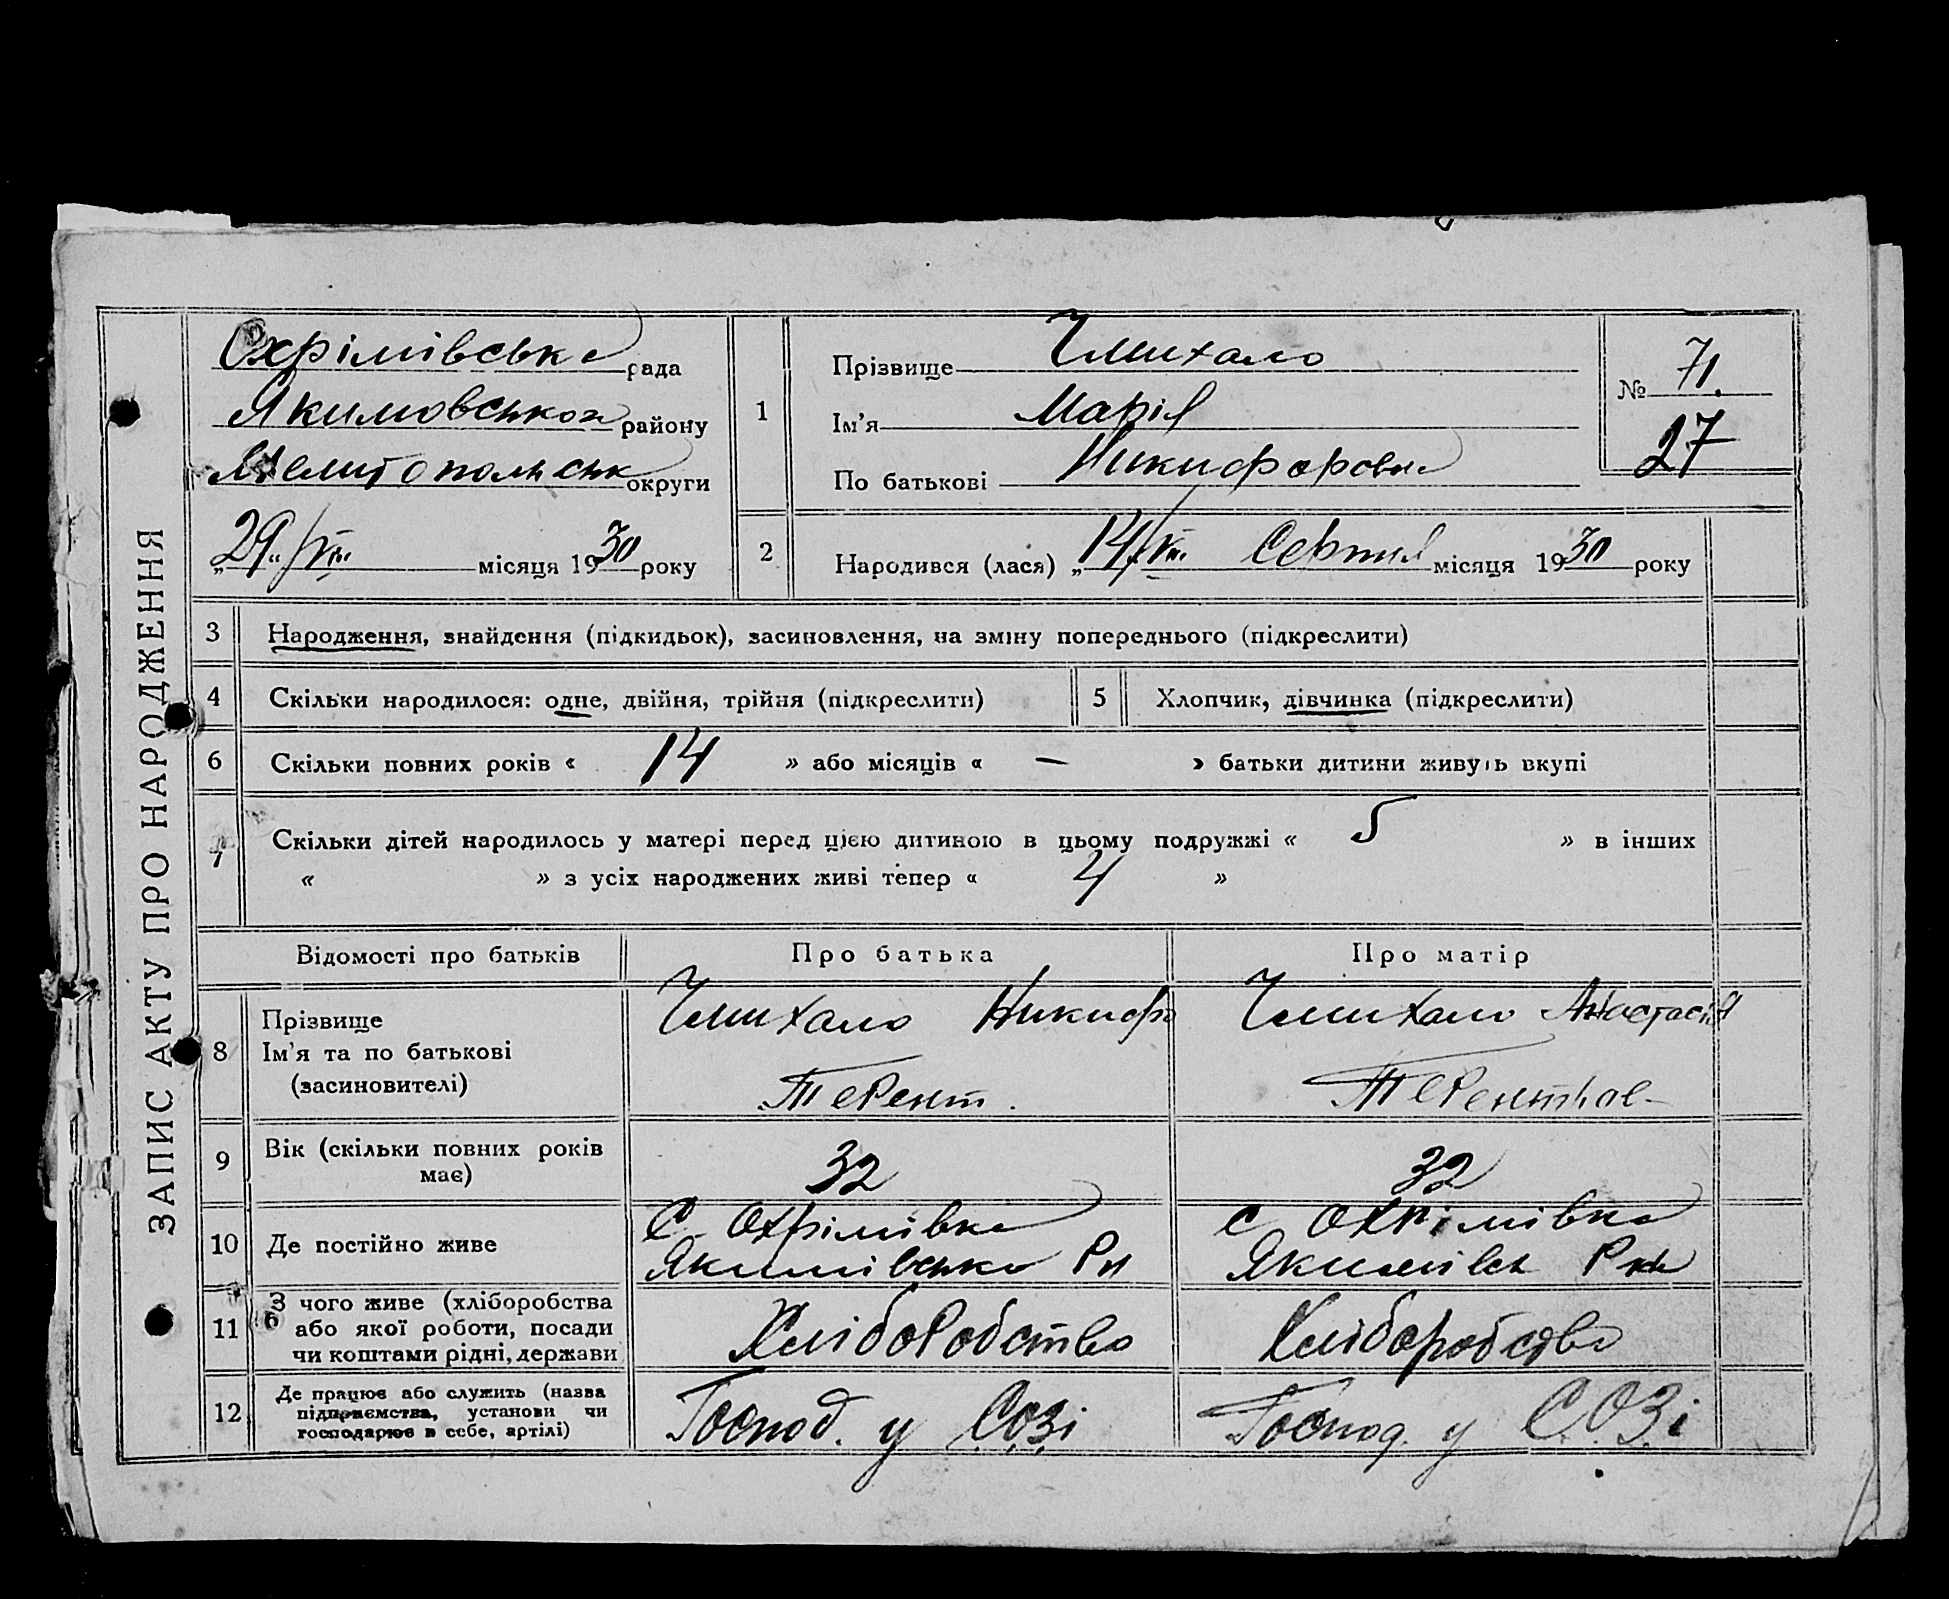 ЗАПИС АКТУ ПРО НАРОДЖЕННЯ
Охрімівська рада
Якимовської району
Мелитопольськ округи
„29“/VIII місяця 1930 року
1
Прізвище Чмихало
Ім'я Марія
По батькові Никифоровна
№ 71.
27
2
Народився (лася) „14/VIII Серпня місяця 1930 року
3 Народження, знайдення (підкидьок), засиновлення, на зміну попереднього (підкреслити)
4 Скільки народилося: одне, двійня, трійня (підкреслити) 5 Хлопчик, дівчинка (підкреслити)
6 Скільки повних років « 14 » або місяців « — » батьки дитини живуть вкупі
7 Скільки дітей народилось у матері перед цією дитиною в цьому подружжі « 5 » в інших
« » з усіх народжених живі тепер « 4 »
Відомості про батьків Про батька Про матір
8 Прізвище
Ім'я та по батькові
(засиновителі)
Чмихало Никифр
Терент.
Чмихало Анастасія
9 Вік (скільки повних років
має)
32 32
10 Де постійно живе
С. Охрімівка
Якимівська Рн
с Охрімівка
Якимівськ
11 З чого живе (хліборобства
або якої роботи, посади
чи коштами рідні, держави
Хліборобство Хліборобство
12 Де працює або служить (назва
підприємства, установи чи
господарює в себе, артілі)
Господ. у СОЗі Господ. у С.О.З.і